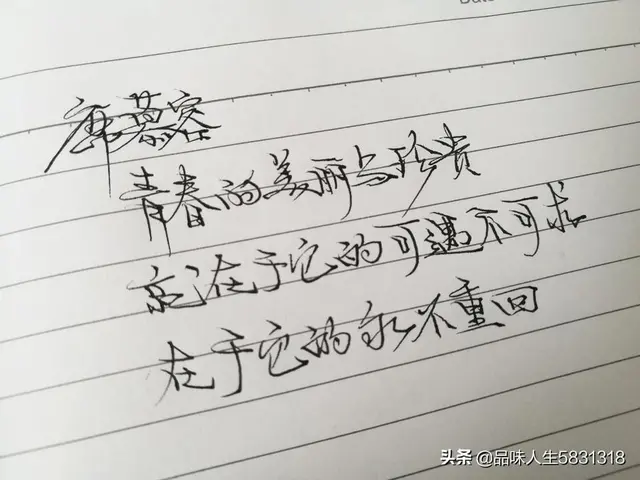 Date
席慕容
青春的美丽与珍贵
就在于它的可遇不可求
在于它的永不重回
头条 @品味人生5831318